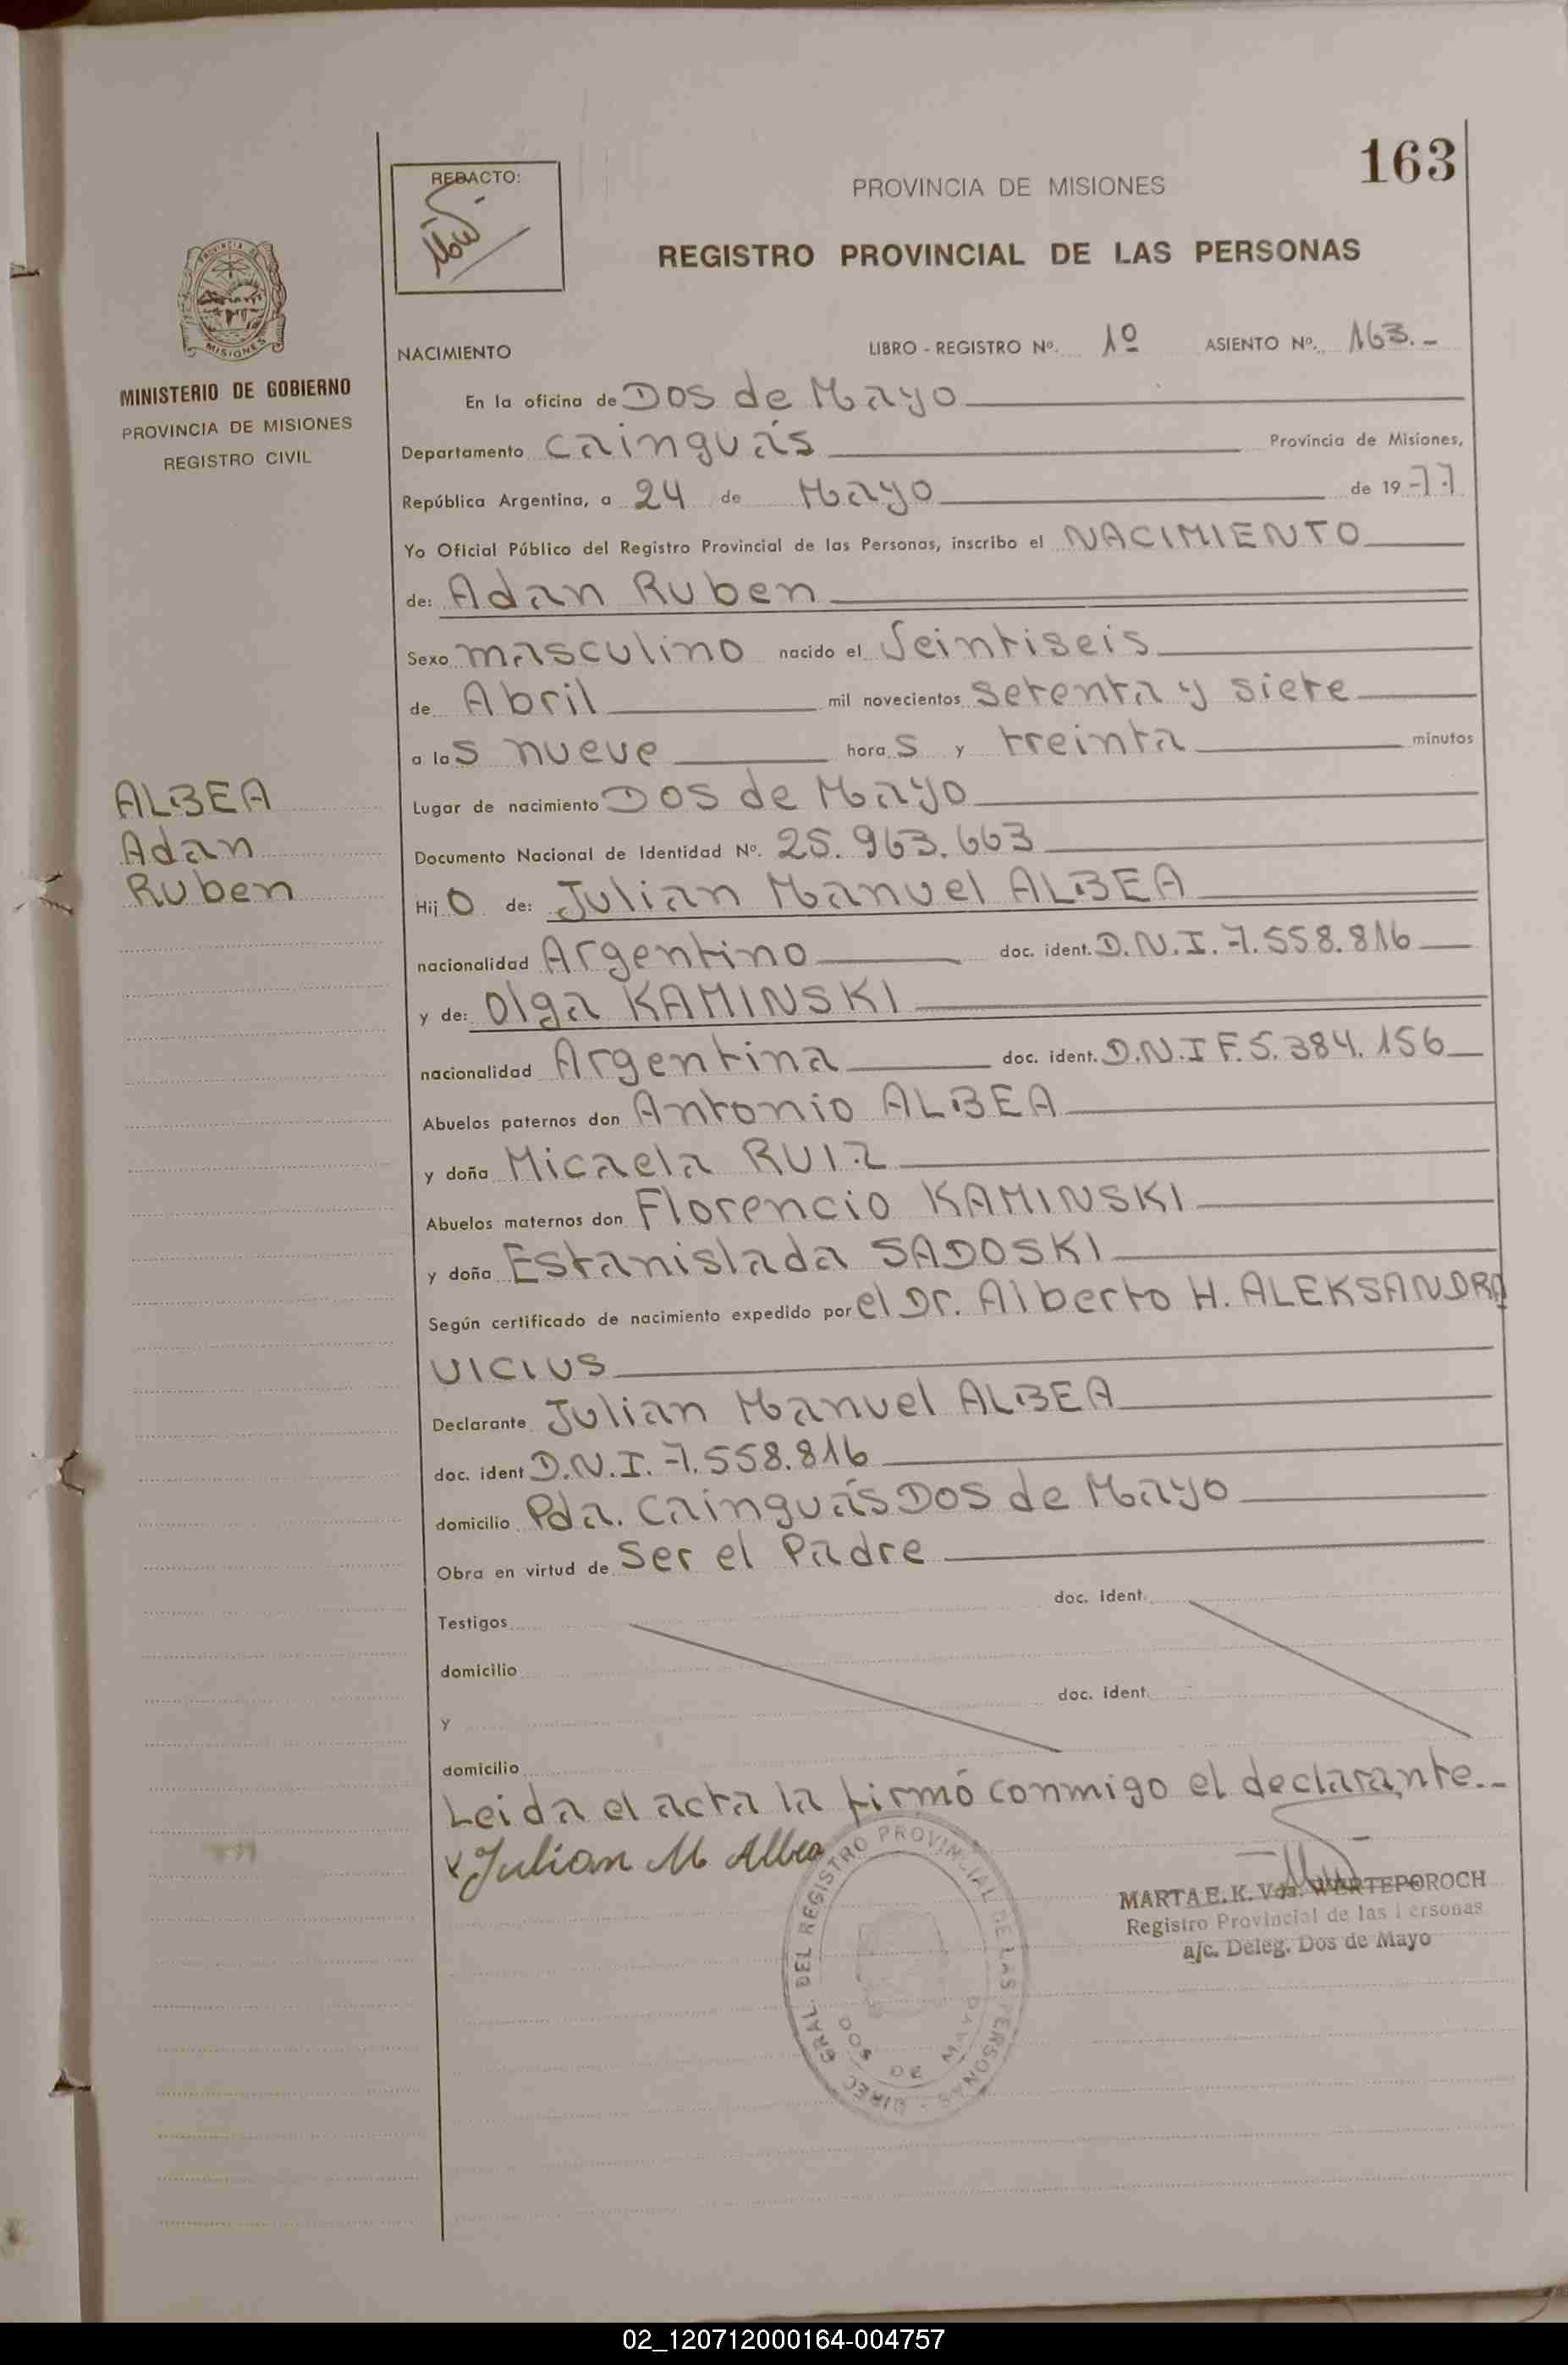 163
REDACTO:
PROVINCIA DE MISIONES
REGISTRO PROVINCIAL DE LAS PERSONAS
PROVINCIA DE
MISIONES
MINISTERIO DE GOBIERNO
PROVINCIA DE MISIONES
REGISTRO CIVIL
NACIMIENTO LIBRO - REGISTRO Nº. 1º ASIENTO Nº. 163.-
En la oficina de Dos de Mayo
Departamento Cainguás Provincia de Misiones,
República Argentina, a 24 de Mayo de 19-77
Yo Oficial Público del Registro Provincial de las Personas, inscribo el NACIMIENTO
de: Adan Ruben
Sexo masculino nacido el Veintiseis
de Abril mil novecientos setenta y siete
a las nueve horas y treinta minutos
ALBEA
Adan
Ruben
Lugar de nacimiento Dos de Mayo
Documento Nacional de Identidad Nº. 25.963.663
Hijo de: Julian Manuel ALBEA
nacionalidad Argentino doc. ident. D.N.I. 7.558.816
y de: Olga KAMINSKI
nacionalidad Argentina doc. ident. D.N.I F.5.384.156
Abuelos paternos don Antonio ALBEA
y doña Micaela RUIZ
Abuelos maternos don Florencio KAMINSKI
y doña Estanislada SADOSKI
Según certificado de nacimiento expedido por el Dr. Alberto H. ALEKSANDRA
VICIUS
Declarante Julian Manuel ALBEA
doc. ident D.N.I. 7.558.816
domicilio Pda. Cainguás Dos de Mayo
Obra en virtud de Ser el Padre
Testigos doc. ident.
domicilio
y doc. ident.
domicilio
Leida el acta la firmó conmigo el declarante.-
x Julian M Albea
DIREC. GRAL. DEL REGISTRO PROVINCIAL DE LAS PERSONAS
DOS DE MAYO
MARTA E. K. Vda. WERTEPOROCH
Registro Provincial de las Personas
a/c. Deleg. Dos de Mayo
02_120712000164-004757